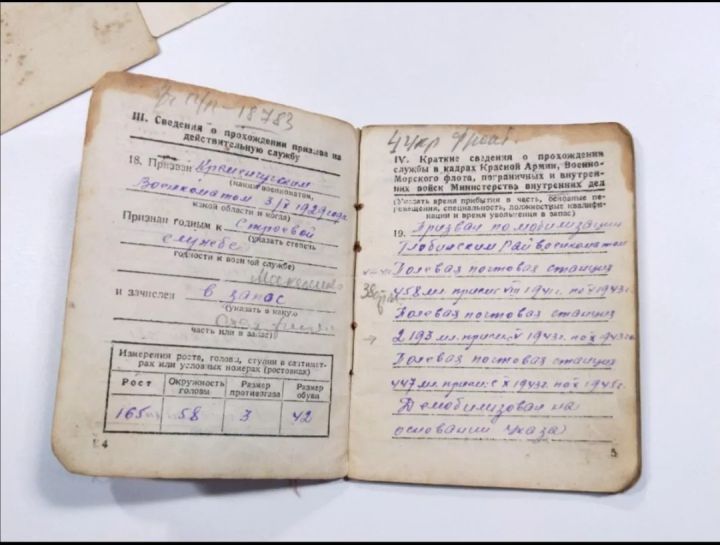 п/п - 18783
III. Сведения о прохождении призыва на
действительную службу
18. Призван Кременчугским
(каким военкоматом,
Военкоматом 3/X 1929 года
какой области и когда)
Признан годным к Строевой
(указать степень
службе
годности к военной службе)
и зачислен в запас
(указать в какую
часть или в запас)
Измерения роста, головы, ступни в сантимет-
рах или условных номерах (ростовках)
Рост
Окружность головы
Размер противогаза
Размер обуви
165
58
3
42
4
4 Укр фронт
IV. Краткие сведения о прохождении
службы в кадрах Красной Армии, Военно-
Морского флота, пограничных и внутрен-
них войск Министерства внутренних дел
(Указать время прибытия в часть, основные пе-
ремещения, специальность, должностные квалифи-
кации и время увольнения в запас)
19. Призван по мобилизации
Глобинским Райвоенкоматом
Полевая почтовая станция
458 мл. VIII 1941г. по V 1943г.
Полевая почтовая станция
2193 мл. V 1943г. по X 1943г.
Полевая почтовая станция
447 мл. с X 1943г. по X 1945г.
Демобилизован на
основании Указа
5